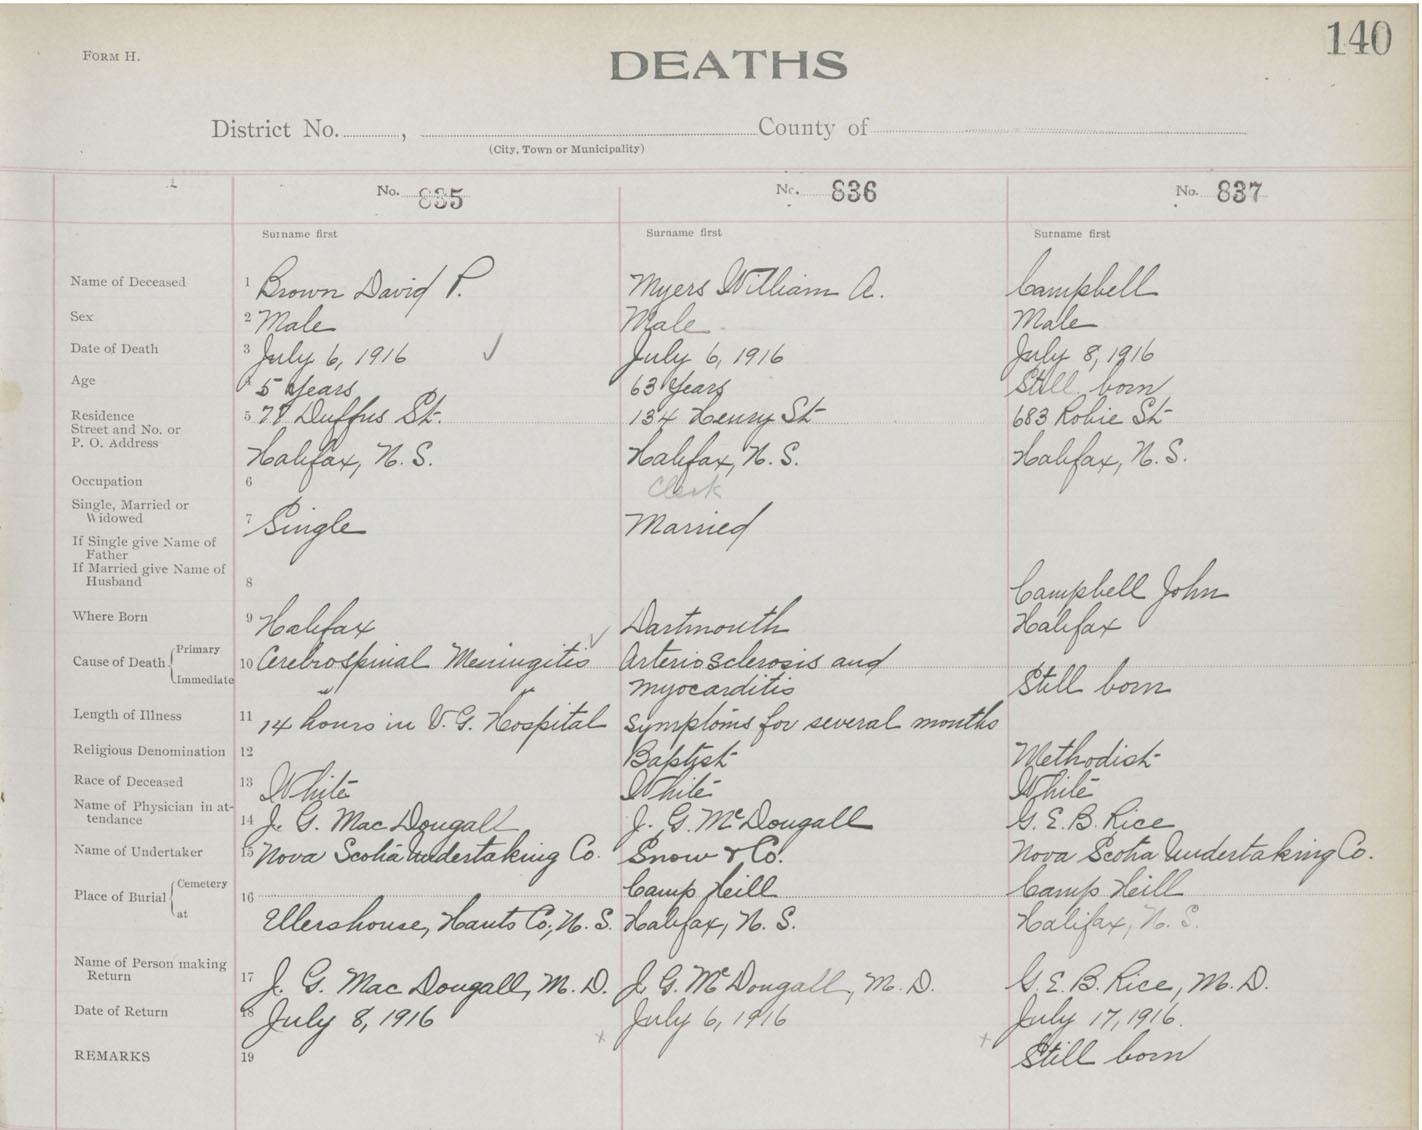 140
FORM H.
DEATHS
District No. , County of
(City, Town or Municipality)
No. 835 No. 836 No. 837
Surname first Surname first Surname first
Name of Deceased 1 Brown David P. Myers William A. Campbell
Sex 2 Male Male Male
Date of Death 3 July 6, 1916 July 6, 1916 July 8, 1916
Age 4 5 Years 63 Years Still born
Residence 5 77 Duffus St. 134 Henry St 683 Robie St
Street and No. or
P. O. Address Halifax, N. S. Halifax, N. S. Halifax, N. S.
Occupation 6 Clerk
Single, Married or
Widowed 7 Single Married
If Single give Name of
Father
If Married give Name of
Husband 8 Campbell John
Where Born 9 Halifax Dartmouth Halifax
Cause of Death Primary 10 Cerebrospinal Meningitis Arterio Sclerosis and
Immediate " " Myocarditis Still born
Length of Illness 11 14 hours in V. G. Hospital Symptoms for several months
Religious Denomination 12 Baptist Methodist
Race of Deceased 13 White White White
Name of Physician in at-
tendance 14 J. G. Mac Dougall J. G. McDougall G. E. B. Rice
Name of Undertaker 15 Nova Scotia Undertaking Co. Snow & Co. Nova Scotia Undertaking Co.
Place of Burial Cemetery 16 Camp Heill Camp Heill
at Ellershouse, Hants Co., N. S. Halifax, N. S. Halifax, N. S.
Name of Person making
Return 17 J. G. Mac Dougall, M. D. J. G. McDougall, M. D. G. E. B. Rice, M. D.
Date of Return 18 July 8, 1916 July 6, 1916 July 17, 1916.
REMARKS 19 Still born